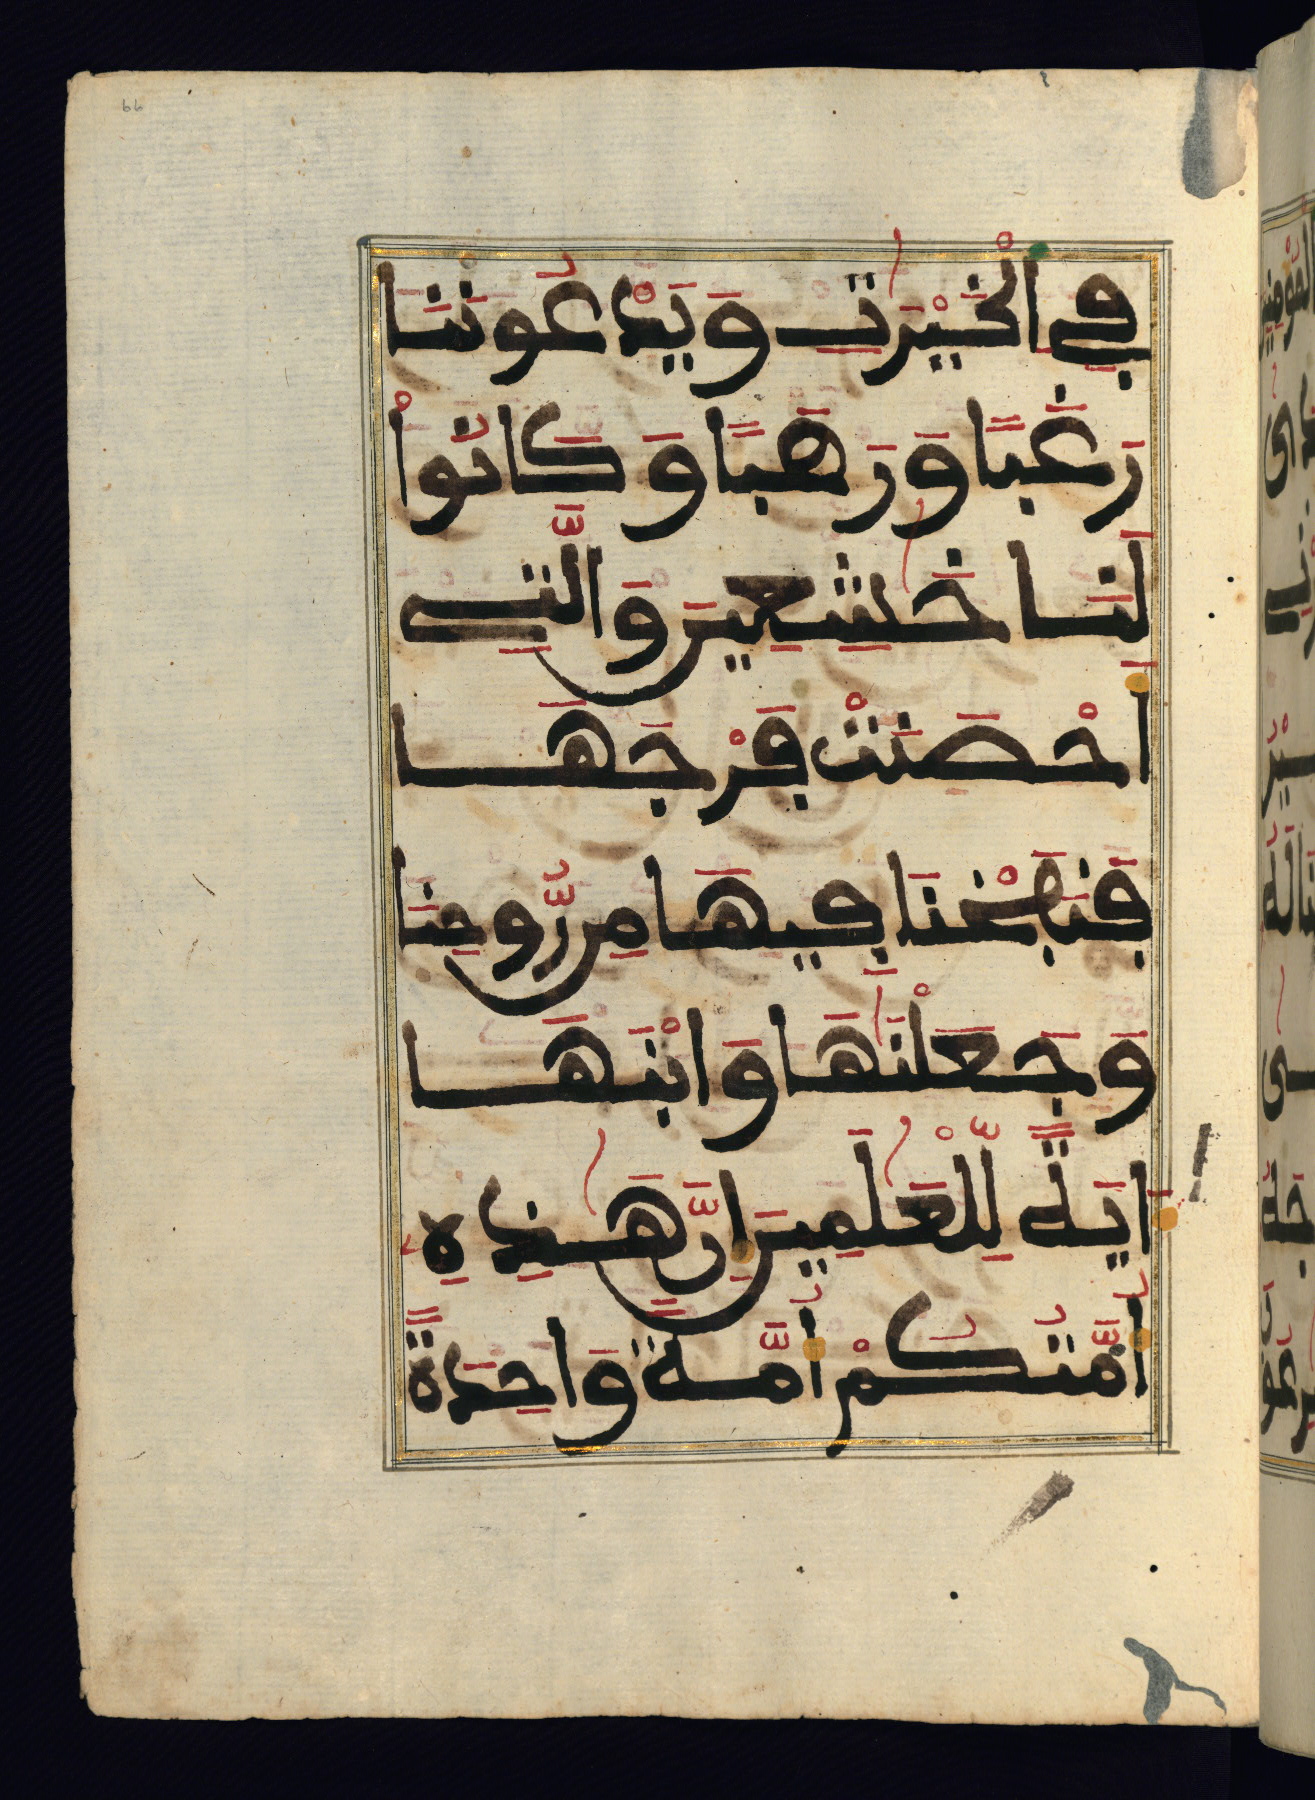 فِى اَ۬لْخَيْرَٰتِ وَيَدْعُونَنَا
رَغَبًا وَرَهَبًا وَكَانُواْ
لَنَا خَٰشِعِينَ وَالتِے
أَحْصَنَتْ فَرْجَهَا
فَنَفَخْنَا فِيهَا مِن رُّوحِنَا
وَجَعَلْنَٰهَا وَابْنَهَا
ءَايَةً لِّلْعَٰلَمِينَ إِنَّ هَٰذِهِ
أُمَّتُكُمْ أُمَّةً وَاحِدَةً